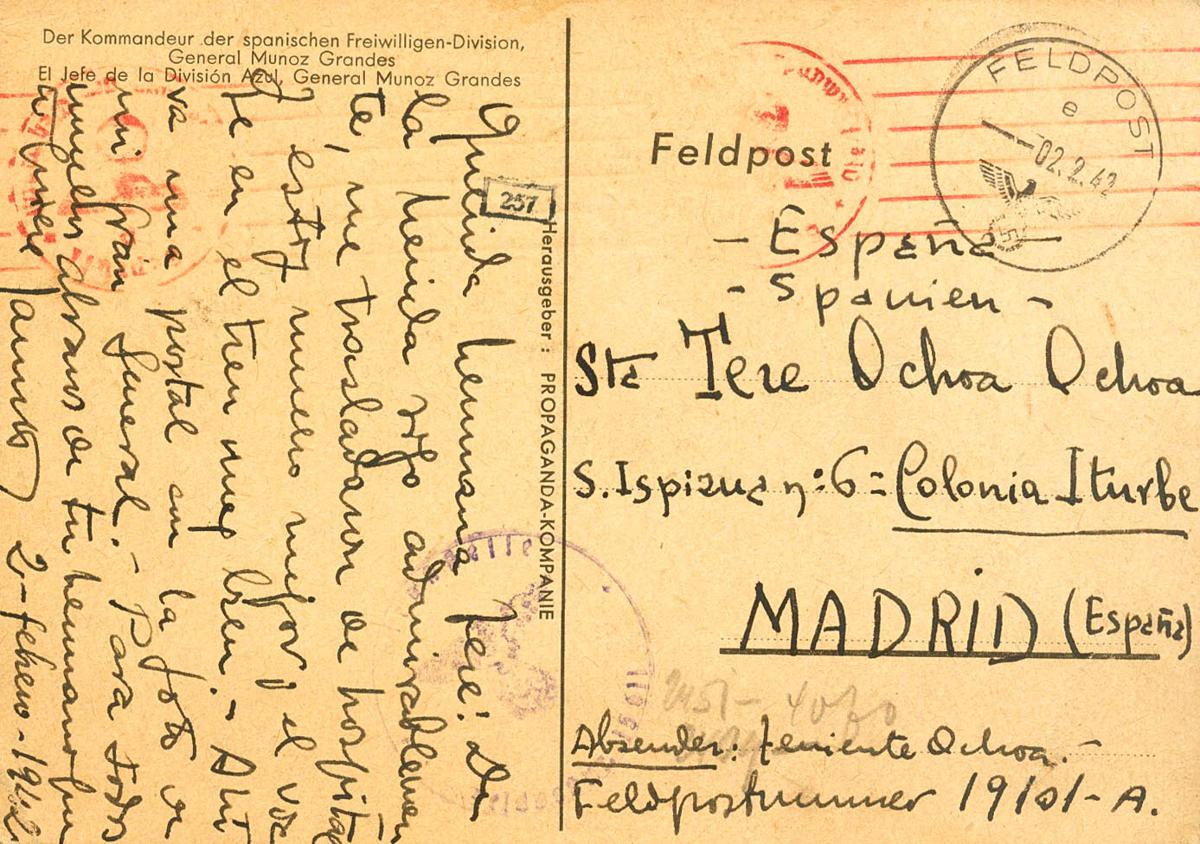 Der Kommandeur der spanischen Freiwilligen-Division,
General Munoz Grandes
El Jefe de la División Azul, General Munoz Grandes
Querida hermana Tere! De
la herida sigo admirablemen
te, me trasladaron de hospital
y estoy mucho mejor y el via
je en el tren muy bien.- Ahi
va una postal con la foto de
mi gran General.- Para todos
muchos abrazos de tu hermano que
2-febrero-1942
257
Herausgeber: PROPAGANDA-KOMPANIE
Feldpost
FELDPOST
e
02.2.42
- España -
- Spanien -
Sta Tere Ochoa Ochoa
S. Ispizua nº: 6 = Colonia Iturbe
MADRID (España)
Absender: teniente Ochoa.-
Feldpostnummer 19101-A.